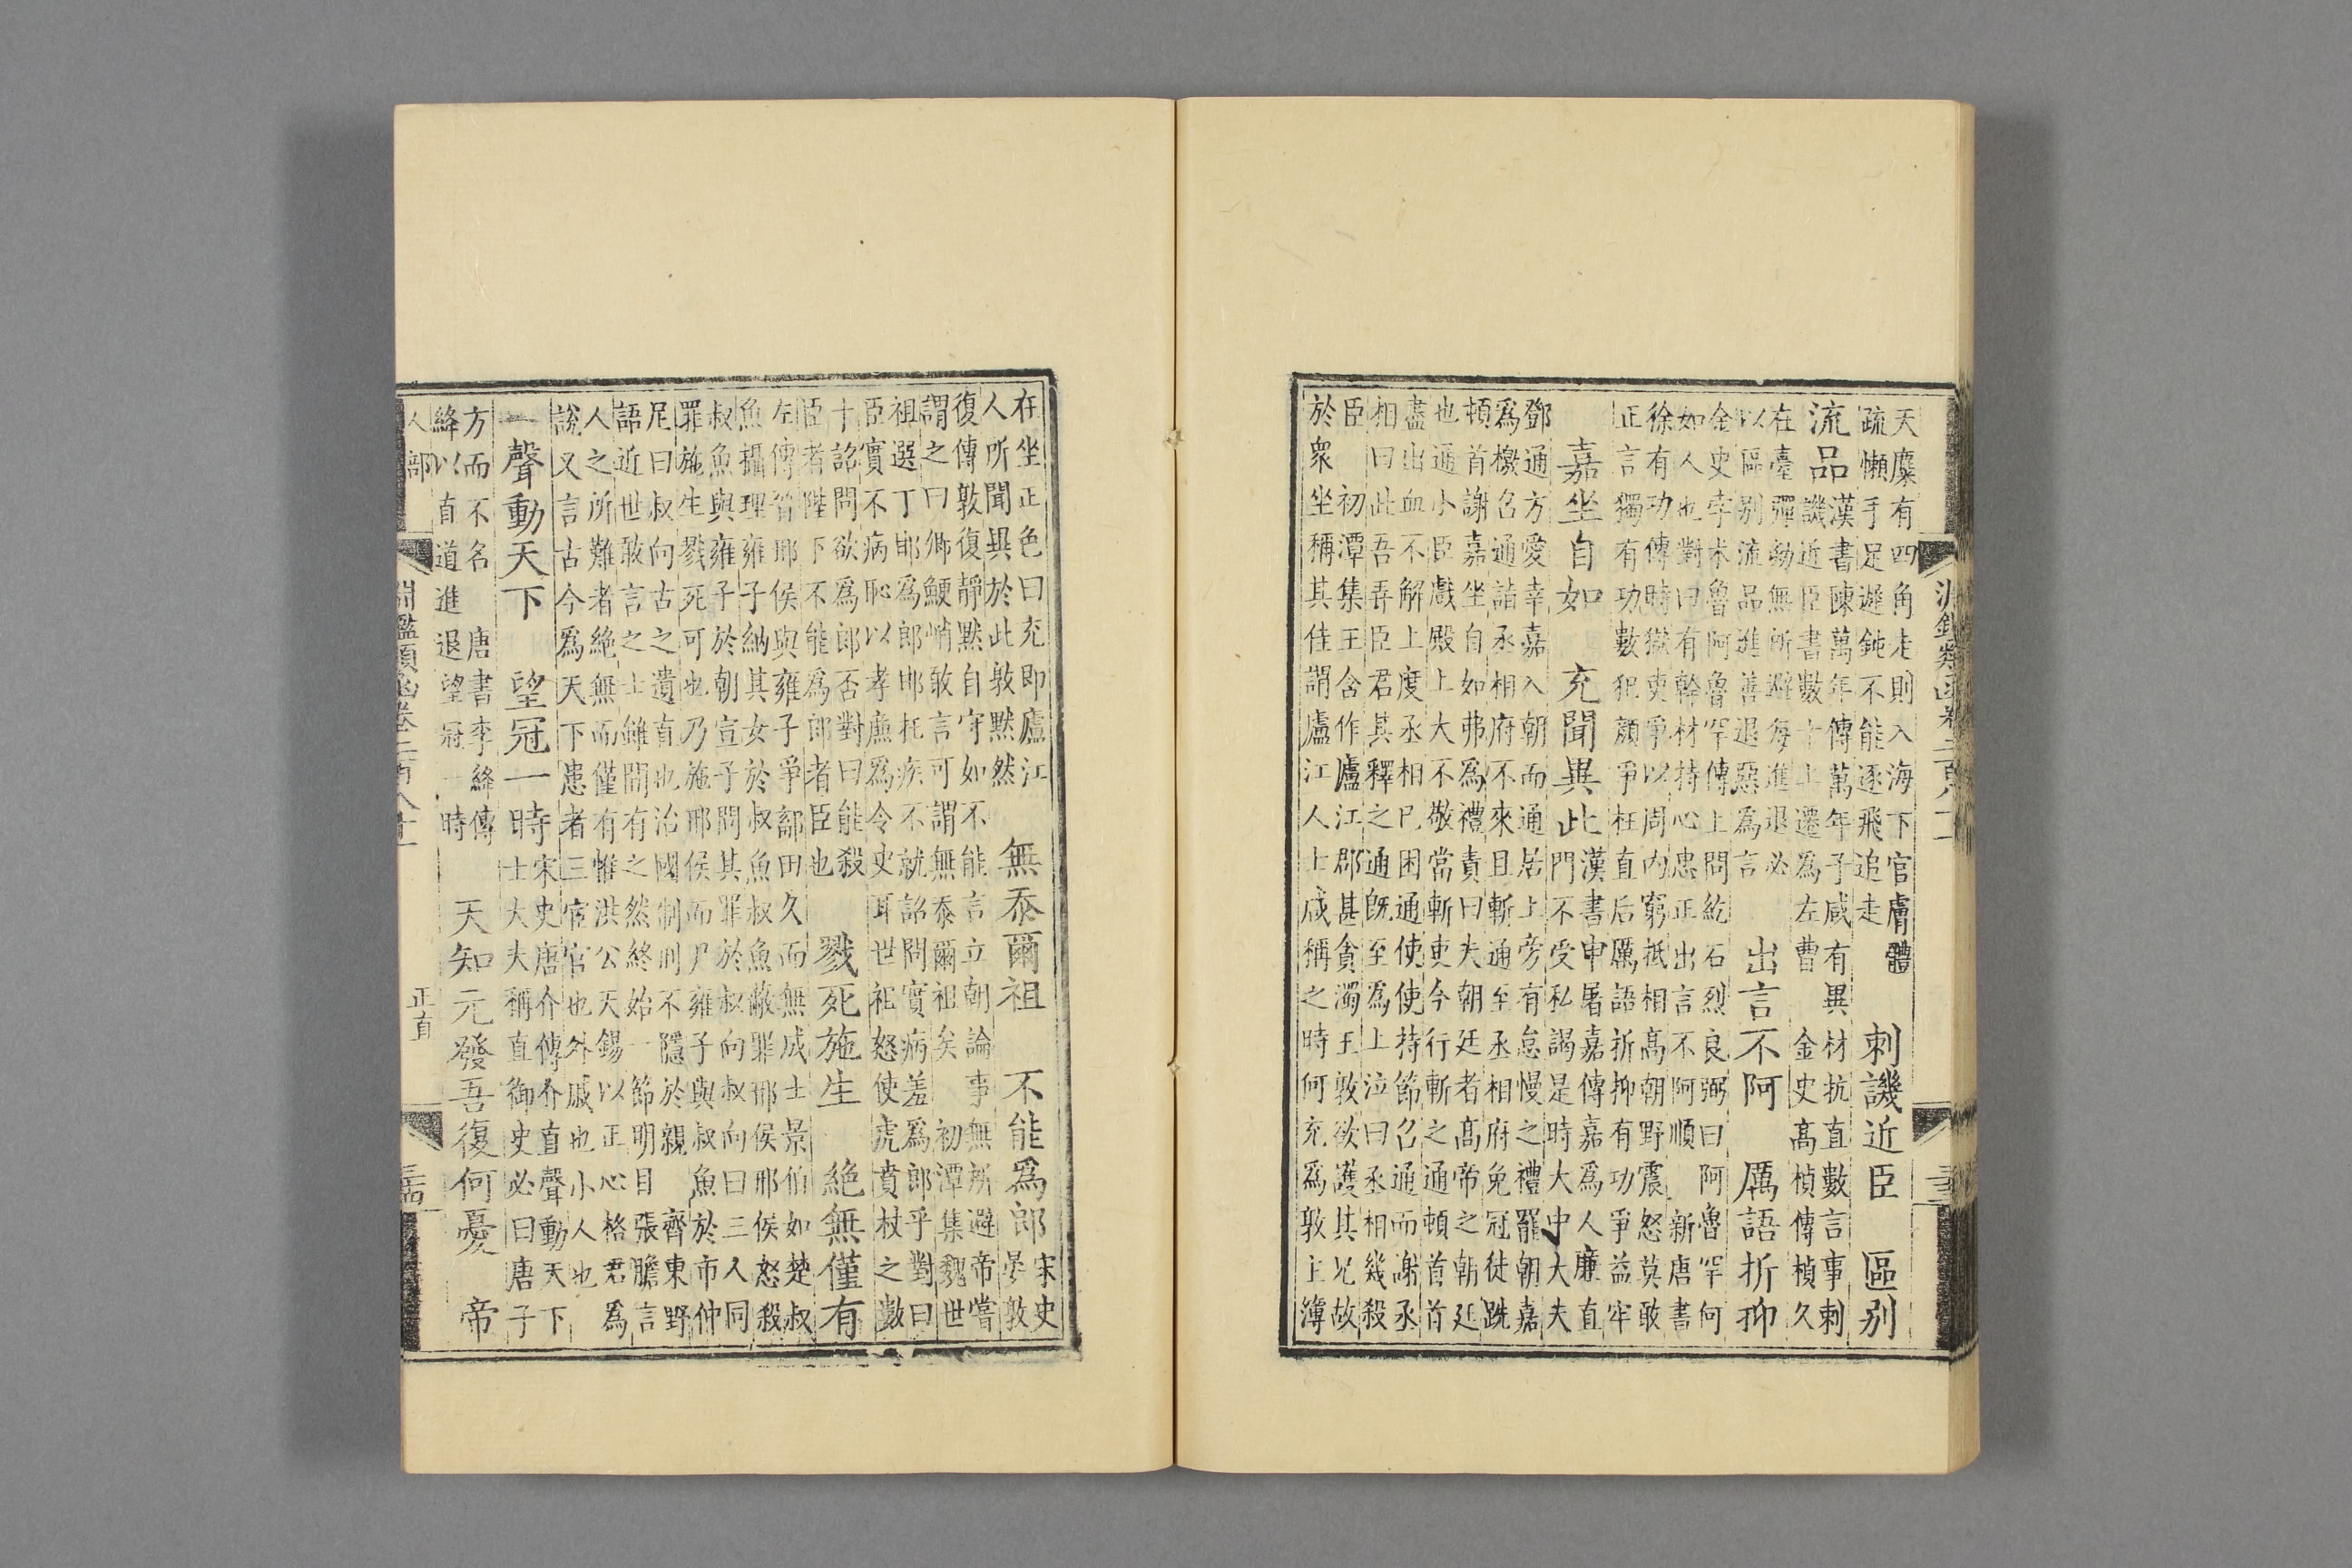 天麋有四角走則入海下官膚體
疏懶手足遲鈍不能逐飛追走
刺譏近臣　區别
流品
漢書陳萬年傳萬年子咸有異材抗直數言事刺
譏近臣書數十上遷爲左曹　金史高楨傳楨久
在臺彈劾無所避每進退必
以區别流品進善退惡爲言
出言不阿　厲語折抑
金史孛朮魯阿魯罕傳上問紇石烈良弼曰阿魯罕何
如人也對曰有幹材持心忠正出言不阿順　新唐書
徐有功傳時獄吏爭以周内窮抵相髙朝野震怒莫敢
正言獨有功數犯顔爭枉直后厲語折抑有功爭益牢
嘉坐自如　充聞異此
漢書申屠嘉傳嘉爲人廉直
門不受私謁是時大中大夫
鄧通方愛幸嘉入朝而通居上旁有怠慢之禮罷朝嘉
爲檄召通詣丞相府不來且斬通至丞相府免冠徒跣
頓首謝嘉坐自如弗爲禮責曰夫朝廷者髙帝之朝廷
也通小臣戲殿上大不敬當斬吏今行斬之通頓首首
盡出血不解上度丞相已困通使使持節召通而謝丞
相曰此吾弄臣君其釋之通旣至爲上泣曰丞相幾殺
臣　初潭集王含作廬江郡甚貪濁王敦欲護其兄故
於衆坐稱其佳謂廬江人士咸稱之時何充爲敦主簿
在坐正色曰充即廬江
人所聞異於此敦默然
無忝爾祖　不能爲郎
宋史
晏敦
復傳敦復靜默自守如不能言立朝論事無所避帝嘗
謂之曰卿鯁峭敢言可謂無忝爾祖矣　初潭集魏世
祖選丁邯爲郎邯托疾不就詔問實病羞爲郎乎對曰
臣實不病恥以孝廉爲令史耳世祖怒使虎賁杖之數
十詔問欲爲郎否對曰能殺
臣者陛下不能爲郎者臣也
戮死施生　絶無僅有
左傳晉邢侯與雍子爭鄐田久而無成士景伯如楚叔
魚攝理雍子納其女於叔魚叔魚蔽罪邢侯邢侯怒殺
叔魚與雍子於朝宣子問其罪於叔向叔向曰三人同
罪施生戮死可也乃施邢侯而尸雍子與叔魚於市仲
尼曰叔向古之遺直也治國制刑不隱於親　齊東野
語近世敢言之士雖間有之然終始一節明目張膽言
人之所難者絶無而僅有惟洪公天錫以正心格君爲
說又言古今爲天下患者三宦官也外戚也小人也
一聲動天下　望冠一時
宋史唐介傳介直聲動天下
士大夫稱直御史必曰唐子
方而不名　唐書李絳傳
絳以直道進退望冠一時
天知元發吾復何憂　帝
人部
淵鑑類函卷二百八十二
正直